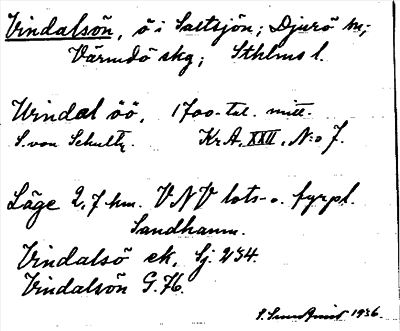 Vindalsön, ö i Saltsjön; Djurö sn;
Värmdö skg; Sthlms l.
Windal öö, 1700-tal. mitt.
S. von Schultz. Kr.A. XXII, N:o 7.
Läge 2,7 km. VNV lots- o. fyrpl.
Sandhamn.
Vindalsö ek. Sj. 234.
Vindalsön G. 76.
1936.